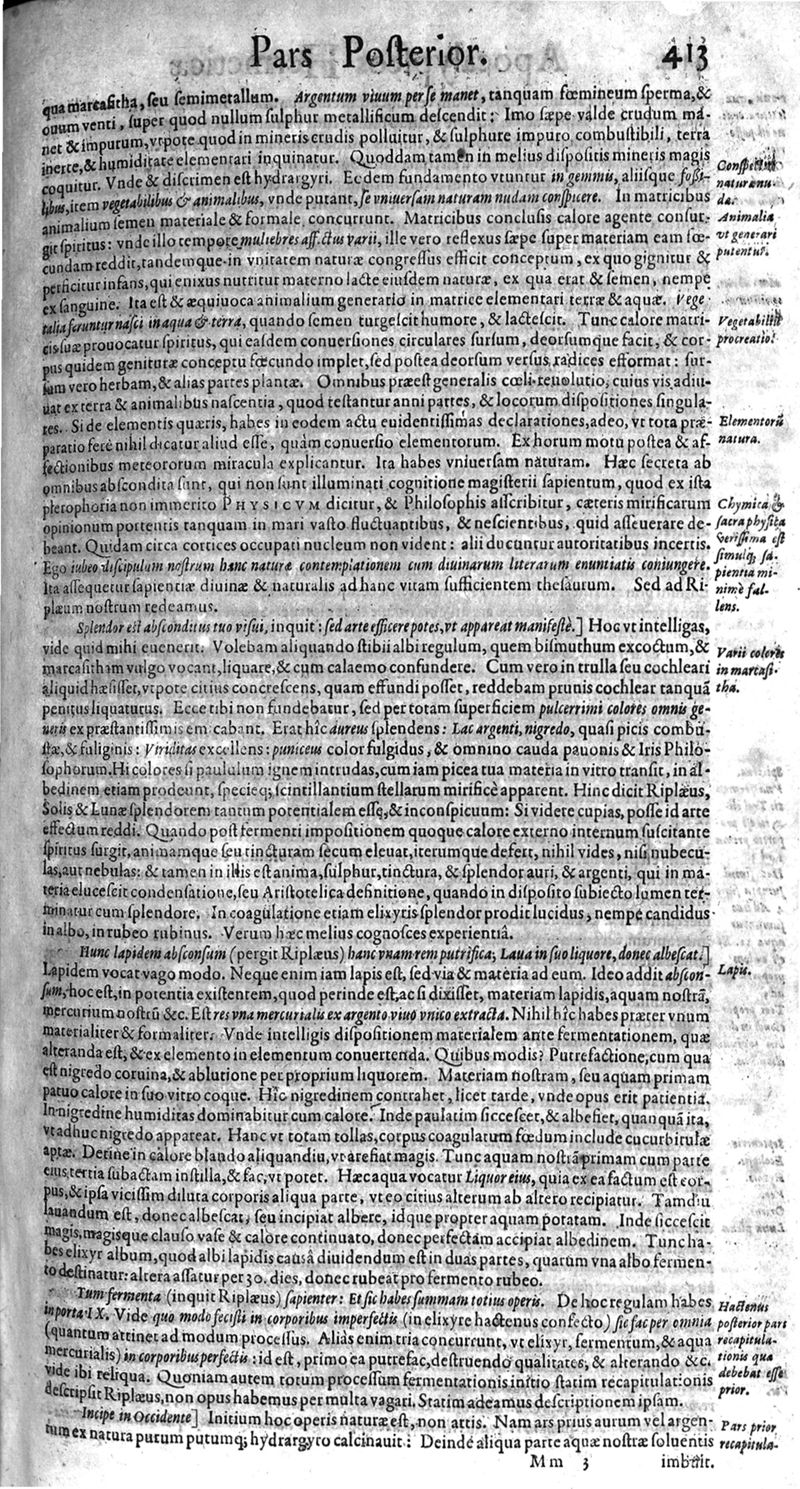 Pars Posterior. 413
qua marcasitha, seu semimetallum. Argentum viuum per se manet, tanquam fœmineum sperma, &
ouum venti, super quod nullum sulphur metallificum descendit: Imo sæpe valde crudum ma-
net & impurum, vtpote quod in mineris crudis polluitur, & sulphure impuro combustibili, terra
inerte, & humiditate elementari inquinatur. Quoddam tamen in melius dispositis mineris magis
coquitur. Vnde & discrimen est hydrargyri. Eodem fundamento vtuntur in gemmis, aliisque fossi-
libus, item vegetabilibus & animalibus, vnde putant, se vniuersam naturam nudam conspicere. In matricibus
animalium semen materiale & formale concurrunt. Matricibus conclusis calore agente consur-
git spiritus: vnde illo tempore muliebres affectus varii, ille vero reflexus sæpe super materiam eam fœ-
cundam reddit, tandemque in vnitatem naturæ congressus efficit conceptum, ex quo gignitur &
perficitur infans, qui enixus nutritur materno lacte eiusdem naturæ, ex qua erat & semen, nempe
ex sanguine. Ita est & æquiuoca animalium generatio in matrice elementari terræ & aquæ. Vege-
talia feruntur nasci in aqua & terra, quando semen turgescit humore, & lactescit. Tunc calore matri-
cis suæ prouocatur spiritus, qui easdem conuersiones circulares sursum, deorsumque facit, & cor-
pus quidem genituræ conceptu fœcundo implet, sed postea deorsum versus radices efformat: sur-
sum vero herbam, & alias partes plantæ. Omnibus præest generalis cœli reuolutio, cuius vis adiu-
uat ex terra & animalibus nascentia, quod testantur anni partes, & locorum dispositiones singula-
res. Si de elementis quæris, habes in eodem actu euidentissimas declarationes, adeo, vt tota præ-
paratio fere nihil dicatur aliud esse, quàm conuersio elementorum. Ex horum motu postea & af-
fectionibus meteororum miracula explicantur. Ita habes vniuersam naturam. Hæc secreta ab
omnibus abscondita sunt, qui non sunt illuminati cognitione magisterii sapientum, quod ex ista
plerophoria non immerito PHYSICVM dicitur, & Philosophis asscribitur, cæteris mirificarum
opinionum portentis tanquam in mari vasto fluctuantibus, & nescientibus, quid asseuerare de-
beant. Quidam circa cortices occupati nucleum non vident: alii ducuntur autoritatibus incertis.
Ego iubeo discipulum nostrum hanc naturæ contemplationem cum diuinarum literarum enuntiatis coniungere.
Ita assequetur sapientiæ diuinæ & naturalis ad hanc vitam sufficientem thesaurum. Sed ad Ri-
plæum nostrum redeamus.
Splendor est absconditus tuo visui, inquit: sed arte efficere potes, vt appareat manifeste.] Hoc vt intelligas,
vide quid mihi euenerit. Volebam aliquando stibii albi regulum, quem bismuthum excoctum, &
marcasitham vulgo vocant, liquare, & cum calaemo confundere. Cum vero in trulla seu cochleari
aliquid hæsisset, vtpote citius concrescens, quam effundi posset, reddebam prunis cochlear tanquã
penitus liquaturus. Ecce tibi non fundebatur, sed per totam superficiem pulcerrimi colores omnis ge-
neris ex præstantissimis emicabant. Erat hîc aureus splendens: Lac argenti, nigredo, quasi picis combu-
stæ, & fuliginis: Viriditas excellens: puniceus color fulgidus, & omnino cauda pauonis & Iris Philo-
sophorum. Hi colores si paululum ignem intrudas, cum iam picea tua materia in vitro transit, in al-
bedinem etiam prodeunt, specieq; scintillantium stellarum mirifice apparent. Hinc dicit Riplæus,
Solis & Lunæ splendorem tantum potentialem esse, & inconspicuum: Si videre cupias, posse id arte
effectum reddi. Quando post fermenti impositionem quoque calore externo internum suscitante
spiritus surgit, animamque seu tincturam secum eleuat, iterumque defert, nihil vides, nisi nubecu-
las, aut nebulas: & tamen in illis est anima, sulphur, tinctura, & splendor auri, & argenti, qui in ma-
teria elucescit condensatione, seu Aristotelica definitione, quando in disposito subiecto lumen ter-
minatur cum splendore. In coagulatione etiam elixyris splendor prodit lucidus, nempe candidus
in albo, in rubeo rubinus. Verum hæc melius cognosces experientiâ.
Hunc lapidem absconsum (pergit Riplæus) hanc vnam rem putrifica; Laua in suo liquore, donec albescat.]
Lapidem vocat vago modo. Neque enim iam lapis est, sed via & materia ad eum. Ideo addit abscon-
sum, hoc est, in potentia existentem, quod perinde est, ac si dixisset, materiam lapidis, aquam nostrã,
mercurium nostrũ &c. Est res vna mercurialis ex argento viuo vnico extracta. Nihil hîc habes præter vnum
materialiter & formaliter. Vnde intelligis dispositionem materialem ante fermentationem, quæ
alteranda est, & ex elemento in elementum conuertenda. Quibus modis? Putrefactione, cum qua
est nigredo coruina, & ablutione per proprium liquorem. Materiam nostram, seu aquam primam
patuo calore in suo vitro coque. Hîc nigredinem contrahet, licet tarde, vnde opus erit patientia.
In nigredine humiditas dominabitur cum calore. Inde paulatim siccescet, & albefiet, quanquã ita,
vt adhuc nigredo appareat. Hanc vt totam tollas, corpus coagulatum fœdum include cucurbitulæ
aptæ. Detine in calore blando aliquandiu, vt arefiat magis. Tunc aquam nostrã primam cum parte
eius, tertia subactam instilla, & fac, vt potet. Hæc aqua vocatur Liquor eius, quia ex ea factum est cor-
pus, & ipsa vicissim diluta corporis aliqua parte, vt eo citius alterum ab altero recipiatur. Tamdiu
lauandum est, donec albescat, seu incipiat albere, idque propter aquam potatam. Inde siccescit
magis, magisque clauso vase & calore continuato, donec perfectam accipiat albedinem. Tunc ha-
bes elixyr album, quod albi lapidis causâ diuidendum est in duas partes, quarum vna albo fermen-
to destinatur: altera assatur per 30. dies, donec rubeat pro fermento rubeo.
Tum fermenta (inquit Riplæus) sapienter: Et sic habes summam totius operis. De hoc regulam habes
in porta IX. Vide quo modo fecisti in corporibus imperfectis (in elixyre hactenus confecto) sic fac per omnia
(quantum attinet ad modum processus. Alias enim tria concurrunt, vt elixyr, fermentum, & aqua
mercurialis) in corporibus perfectis: id est, primo ea putrefac, destruendo qualitates, & alterando &c.
vide ibi reliqua. Quoniam autem totum processum fermentationis initio statim recapitulationis
descripsit Riplæus, non opus habemus per multa vagari. Statim adeamus descriptionem ipsam.
Incipe in Occidente] Initium hoc operis naturæ est, non artis. Nam ars prius aurum vel argen-
tum ex natura purum putumq; hydrargyro calcinauit: Deinde aliqua parte aquæ nostræ soluentis
Mm 3 imbuit.
Conspectus
naturæ nu-
da.
Animalia
vt generari
putentur.
Vegetabilis
procreatio.
Elementorũ
natura.
Chymica &
sacra physica
verissima est
simulq; sa-
pientia mi-
nime fal-
lens.
Varii colores
in marcasi-
tha.
Lapis.
Hactenus
posterior pars
recapitula-
tionis qua
debebat esse
prior.
Pars prior
recapitula-